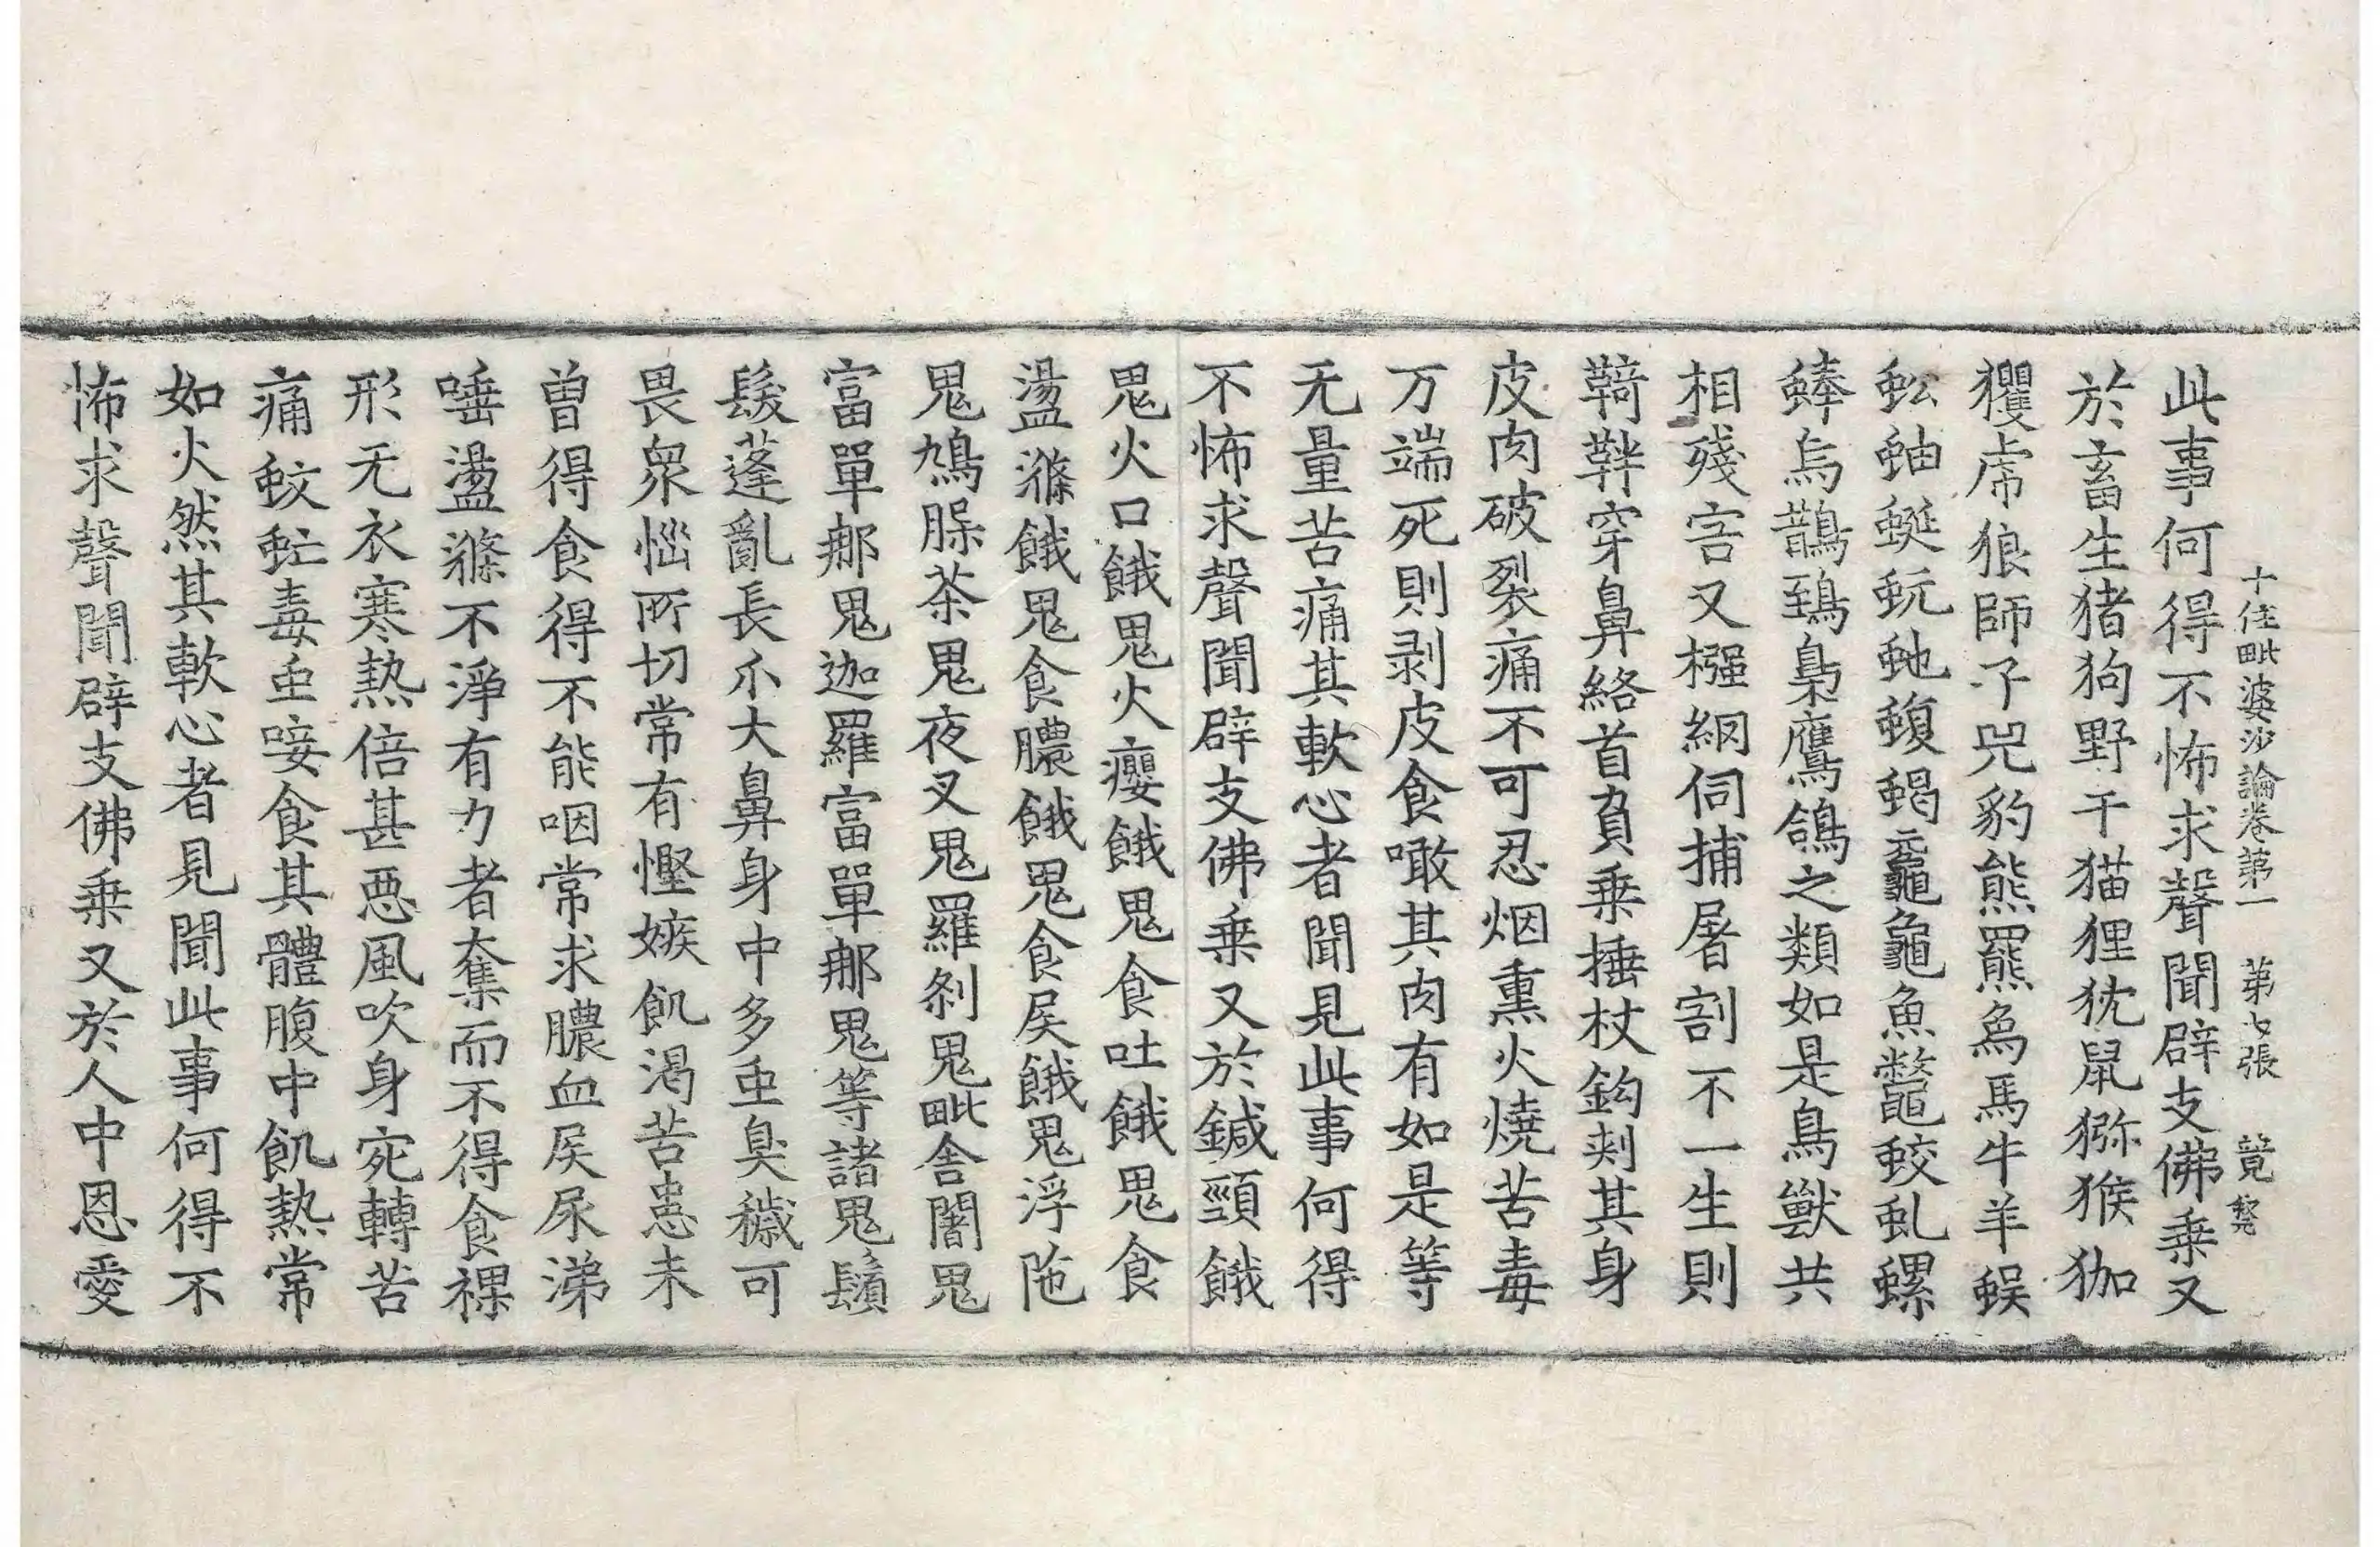 十住毗婆沙論卷第一 第七張 竟
此事何得不怖求聲聞辟支佛乗又
於畜生猪狗野干猫狸狖鼠獼猴㹢
玃虎狼師子兕豹熊羆爲馬牛羊蜈
蚣蚰蜒蚖虵蝮蝎黿龜魚鼈蛟虬螺
蜯烏鵲鵄梟鷹鴿之類如是鳥獸共
相殘害又𢐧網伺捕屠割不一生則
羇靽穿鼻絡首負乗捶杖鈎刾其身
皮肉破裂痛不可忍烟熏火燒苦毒
万端死則剥皮食噉其肉有如是等
无量苦痛其軟心者聞見此事何得
不怖求聲聞辟支佛乗又於鍼頸餓
鬼火口餓鬼火癭餓鬼食吐餓鬼食
盪滌餓鬼食膿餓鬼食屎餓鬼浮陁
鬼鳩脲荼鬼夜叉鬼羅刹鬼毗舍闍鬼
富單那鬼迦羅富單那鬼等諸鬼鬚
髮蓬亂長爪大鼻身中多䖝臭穢可
畏衆惱所切常有慳嫉飢渴苦患未
曾得食得不能咽常求膿血屎尿涕
唾盪滌不淨有力者奪而不得食裸
形无衣寒熱倍甚惡風吹身宛轉苦
痛蚊虻毒䖝唼食其體腹中飢熱常
如火然其軟心者見聞此事何得不
怖求聲聞辟支佛乗又於人中恩愛